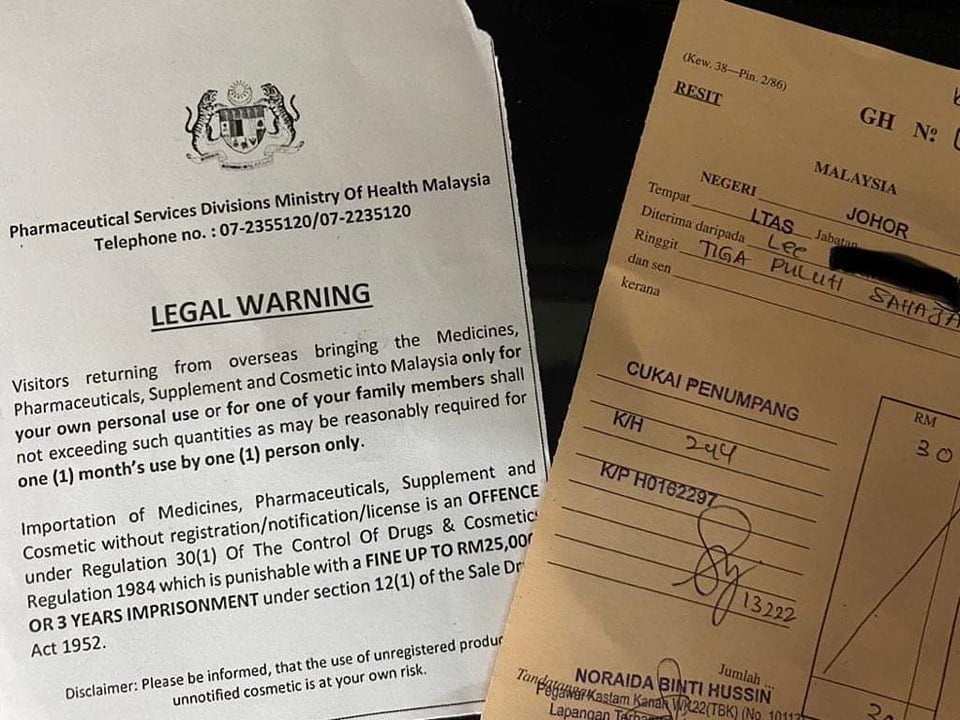 Pharmaceutical Services Divisions Ministry Of Health Malaysia
Telephone no. : 07-2355120/07-2235120
LEGAL WARNING
Visitors returning from overseas bringing the Medicines,
Pharmaceuticals, Supplement and Cosmetic into Malaysia only for
your own personal use or for one of your family members shall
not exceeding such quantities as may be reasonably required for
one (1) month's use by one (1) person only.
Importation of Medicines, Pharmaceuticals, Supplement and
Cosmetic without registration/notification/license is an OFFENCE
under Regulation 30(1) Of The Control of Drugs & Cosmetic
Regulation 1984 which is punishable with a FINE UP TO RM25,000
OR 3 YEARS IMPRISONMENT under section 12(1) of the Sale Dr
Act 1952.
Disclaimer: Please be informed, that the use of unregistered produ
unnotified cosmetic is at your own risk.
(Kew. 38—Pin. 2/86)
RESIT
GH Nº
MALAYSIA
NEGERI JOHOR
Tempat LTAS Jabatan
Diterima daripada LEE
Ringgit TIGA PULUH SAHAJA
dan sen
kerana
CUKAI PENUMPANG
K/H 244
K/P H0162297
13222
RM
30
Jumlah
30
NORAIDA BINTI HUSSIN
Pegawai Kastam Kanan WK22(TBK) (No. 10112
Lapangan